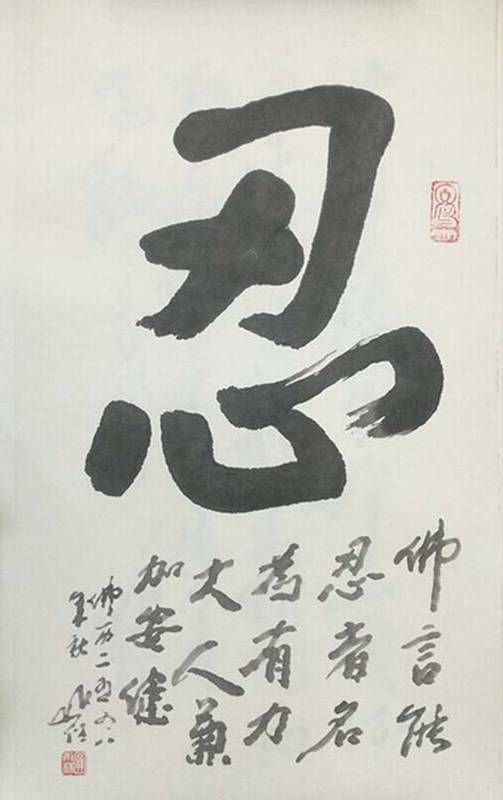 忍
佛言能
忍者名
為有力
大人兼
加安健
佛历二五五八
年秋